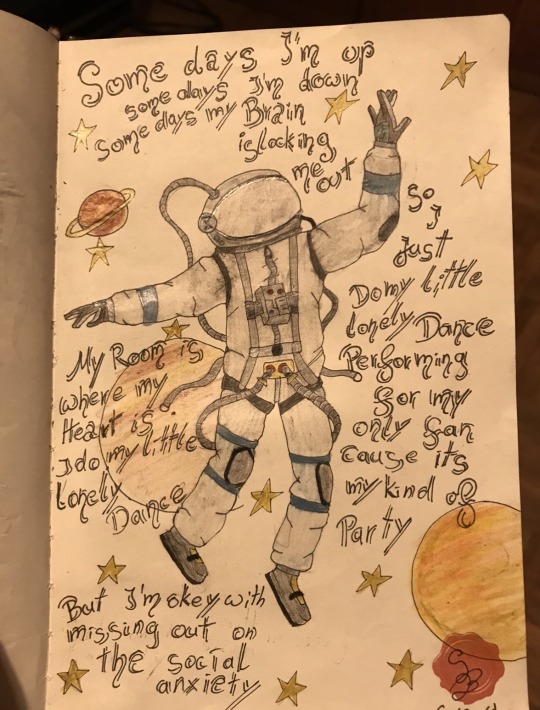 Some days I'm up
some days I'm down
some days my Brain
islocking
me out
So
I
just
Do my little
lonely Dance
Performing
for my
only fan
cause its
my kind of
Party
My Room is
where my
Heart is.
I do my little
lonely
Dance
But I'm okey with
missing out on
the social
anxiety
SB